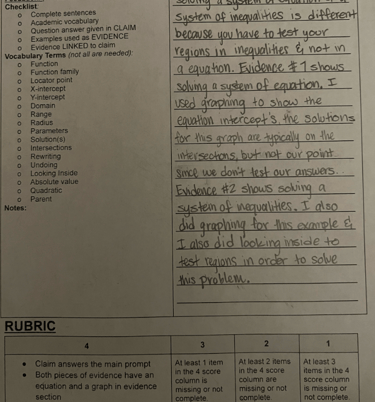 Checklist
o Complete sentences
o Academic vocabulary
o Question answer given in CLAIM
o Examples used as EVIDENCE
o Evidence LINKED to claim
Vocabulary Terms (not all are needed):
o Function
o Function family
o Locator point
o X-intercept
o Y-intercept
o Domain
o Range
o Radius
o Parameters
o Solution(s)
o Intersections
o Rewriting
o Undoing
o Looking Inside
o Absolute value
o Quadratic
o Parent
Notes:
solving a system of
system of inequalities is different
because you have to test your
regions in inequalities & not in
a equation. Evidence #1 shows
solving a system of equation, I
used graphing to show the
equation intercept's the solutions
for this graph are typically on the
intersections, but not our point
since we don't test our answers.
Evidence #2 shows solving a
system of inequalities. I also
did graphing for this example &
I also did looking inside to
test regions in order to solve
this problem.
RUBRIC
4 3 2 1
• Claim answers the main prompt
• Both pieces of evidence have an
equation and a graph in evidence
section
At least 1 item
in the 4 score
column is
missing or not
complete.
At least 2 items
in the 4 score
column are
missing or not
complete.
At least 3
items in the 4
score column
is missing or
not complete.